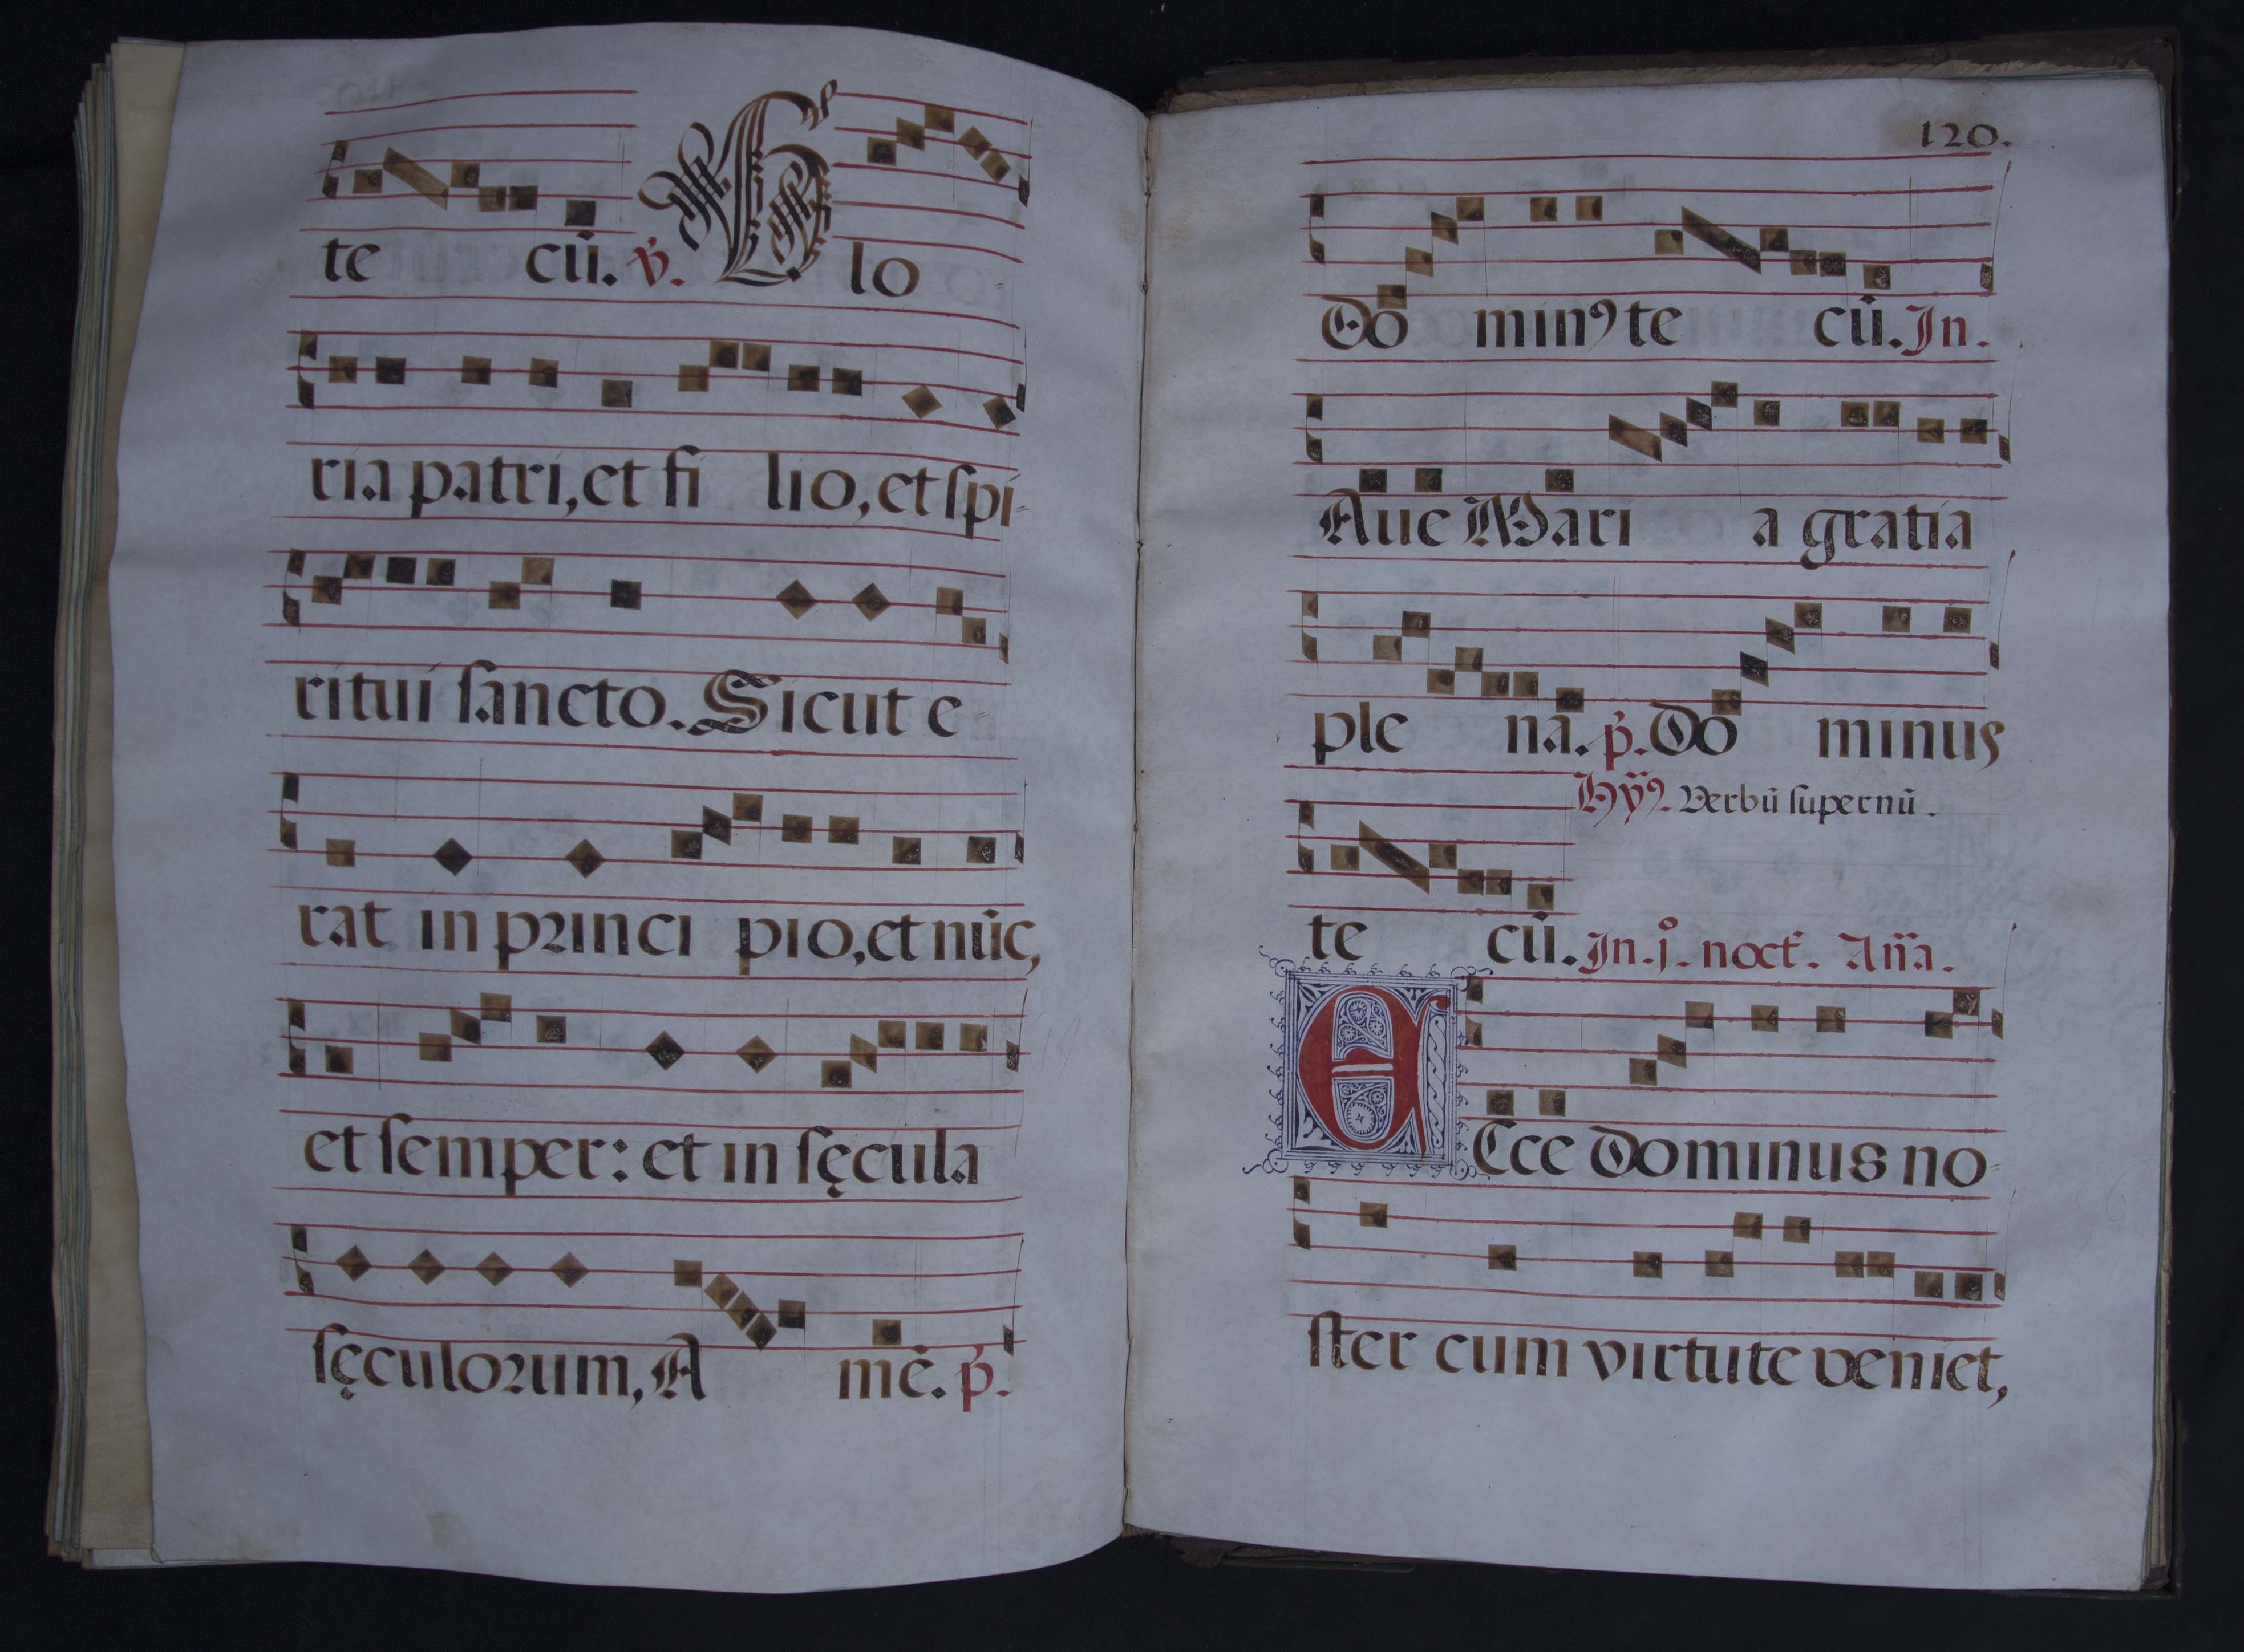 te cū. ꝟ. Glo-
ria patri, et fi lio, et ſpi-
ritui ſancto. Sicut e-
rat in princi pio, et nūc,
et ſemper: et in ſęcula
ſęculoꝛum, A mē. p̄.
120.
Do minꝰ te cū. In.
Aue Mari a gratia
ple nā. p̄. Do minus
Hȳꝰ. Verbū ſupernū.
te cū. In. j.º noct̄. An̄a.
ECce dominus no-
ſter cum virtute veniet,